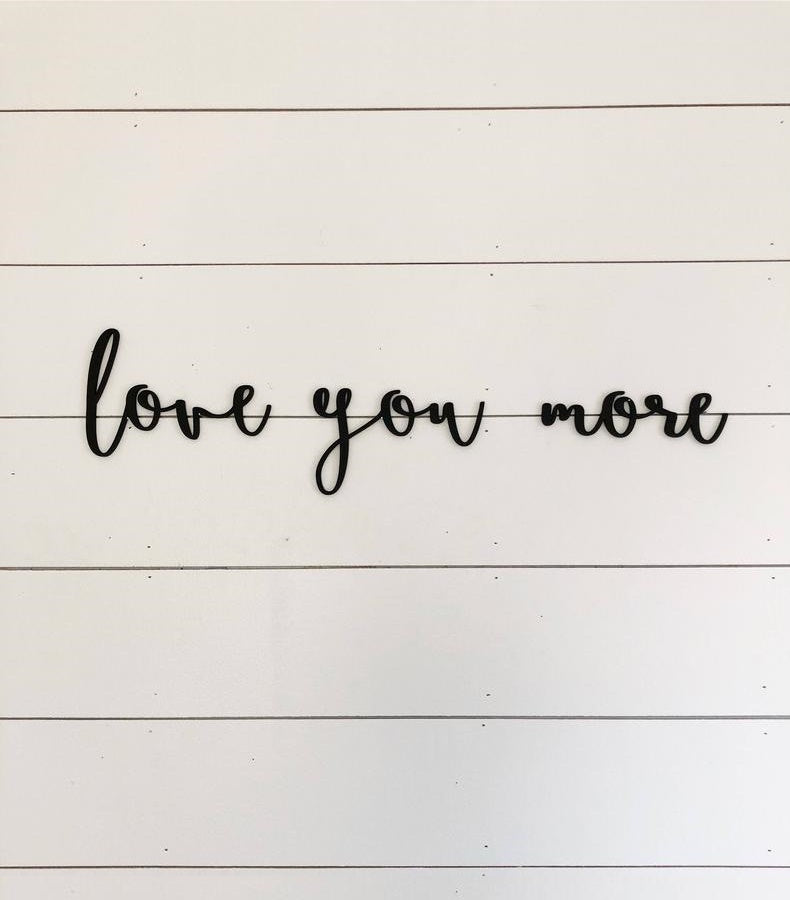 love you more